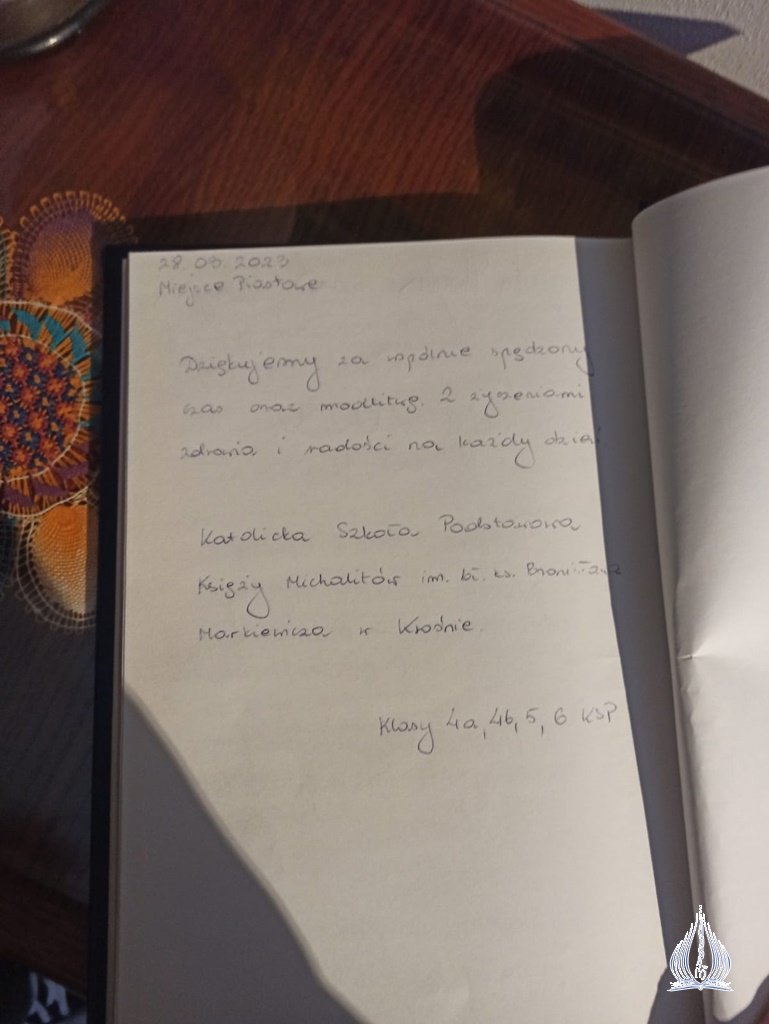 28.03.2023
Miejsce Piastowe
Dziękujemy za wspólnie spędzony
czas oraz modlitwę. Z życzeniami
zdrowia i radości na każdy dzień
Katolicka Szkoła Podstawowa
Księży Michalitów im. bł. ks. Bronisława
Markiewicza w Krośnie.
Klasy 4a, 4b, 5, 6 KSP